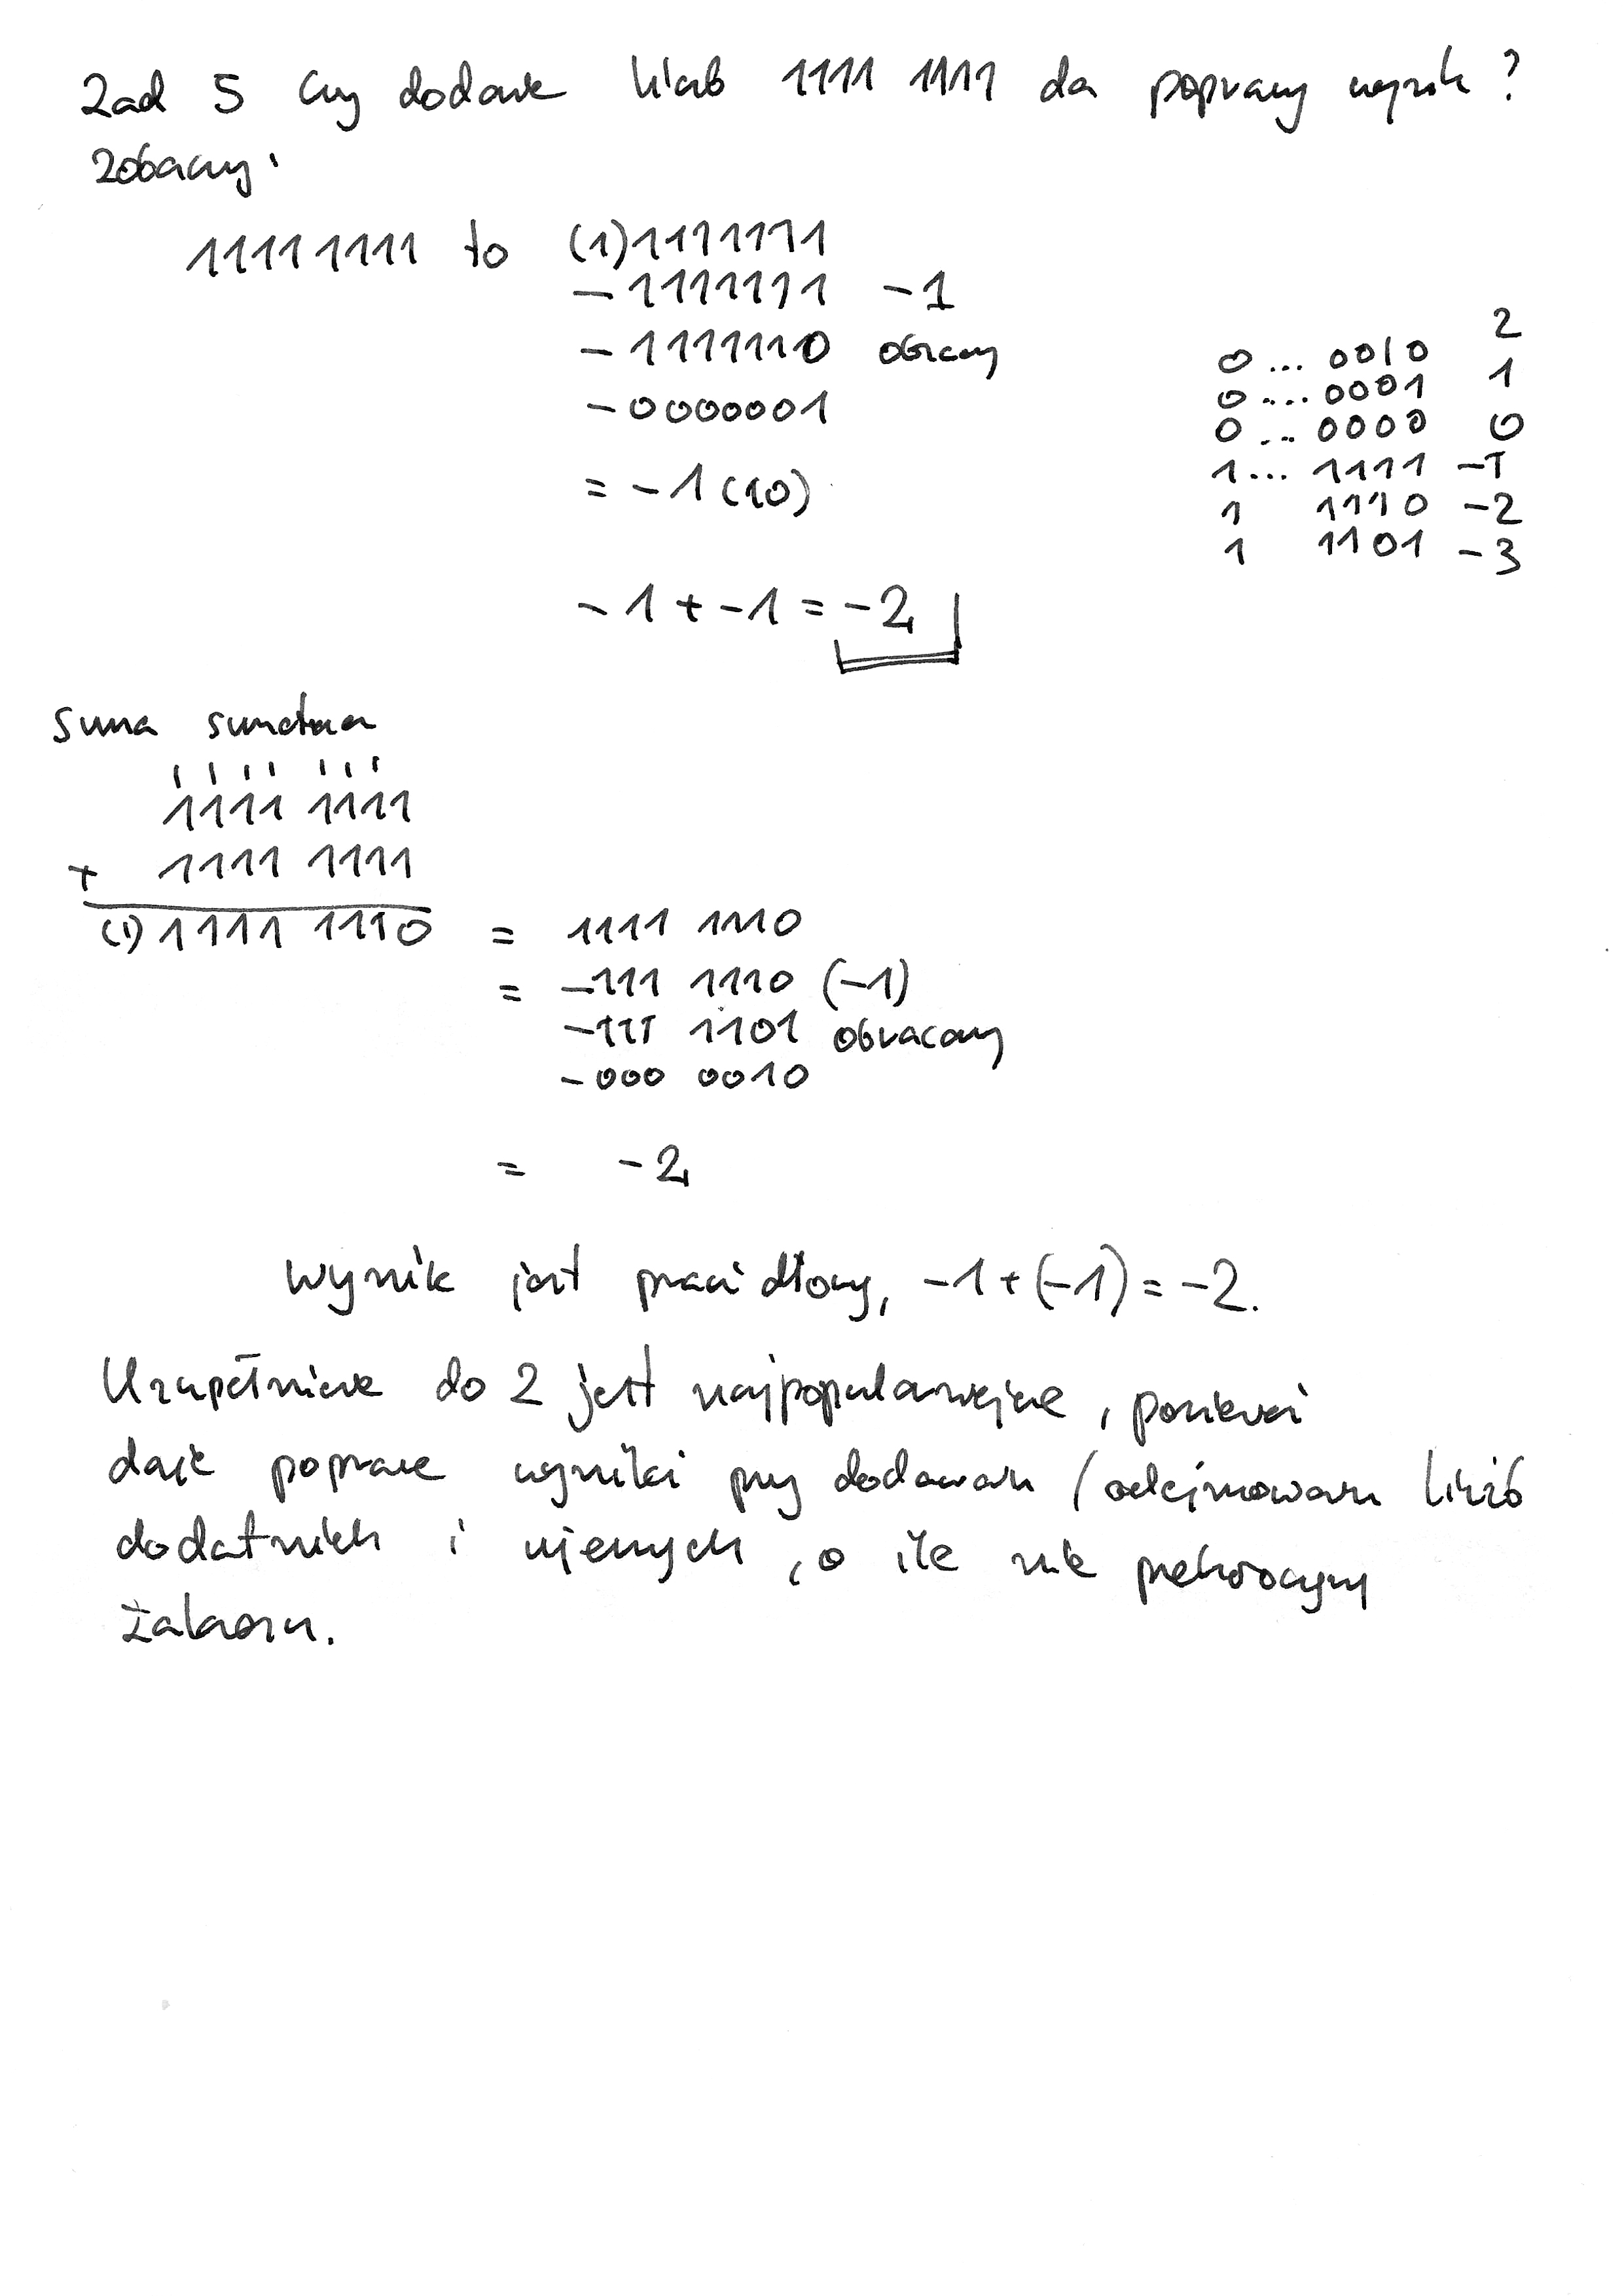 Zad 5 Czy dodanie liczb 1111 1111 da poprawny wynik ?
Zobaczmy:
11111111 to (1)1111111
- 1111111 -1
- 1111110 obracamy
- 0000001
= -1 (10)
0 ... 0010 2
0 ... 0001 1
0 ... 0000 0
1 ... 1111 -1
1 1110 -2
1 1101 -3
- 1 + -1 = -2
Suma
1111 1111
+ 1111 1111
(1) 1111 1110 = 1111 1110
= -111 1110 (-1)
-111 1101 obracamy
-000 0010
= -2
Wynik jest prawidłowy, -1 + (-1) = -2.
Uzupełnienie do 2 jest najpopularniejsze, ponieważ
daje poprawne wyniki przy dodawaniu / odejmowaniu liczb
dodatnich i ujemnych, o ile nie przekroczymy
zakresu.